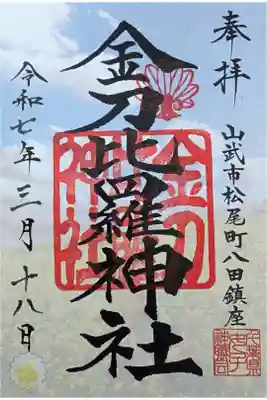 奉拝
山武市松尾町八田鎮座
金刀比羅神社
令和七年三月十八日